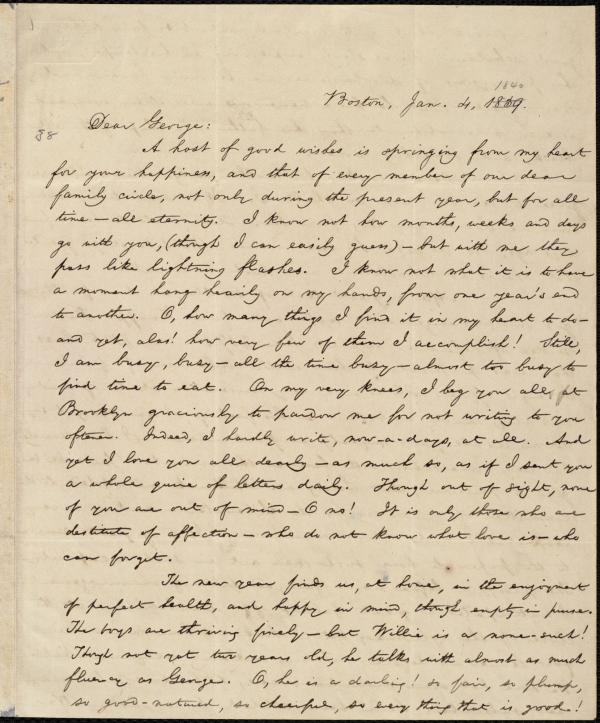 1840
Boston, Jan. 4, 1819.
Dear George:
A host of good wishes is springing from my heart
for your happiness, and that of every member of our dear
family circle, not only during the present year, but for all
time—all eternity. I know not how months, weeks and days
go with you, (though I can easily guess)—but with me they
pass like lightning flashes. I know not what it is to have
a moment hang heavily on my hands, from one year's end
to another. O, how many things I find it in my heart to do—
and yet, alas! how very few of them I accomplish! Still,
I am busy, busy—all the time busy—almost too busy to
find time to eat. On my very knees, I beg you all at
Brooklyn graciously to pardon me for not writing to you
oftener. Indeed, I hardly write, now-a-days, at all. And
yet I love you all dearly—as much so, as if I sent you
a whole quire of letters daily. Though out of sight, none
of you are out of mind—O no! It is only those who are
destitute of affection—who do not know what love is—who
can forget.
The new year finds us, at home, in the enjoyment
of perfect health, and happy in mind, though empty in purse.
The boys are thriving finely—but Willie is a none-such!
Though not yet two years old, he talks with almost as much
fluency as George. O, he is a darling! so fair, so plump,
so good-natured, so cheerful, so every thing that is good!